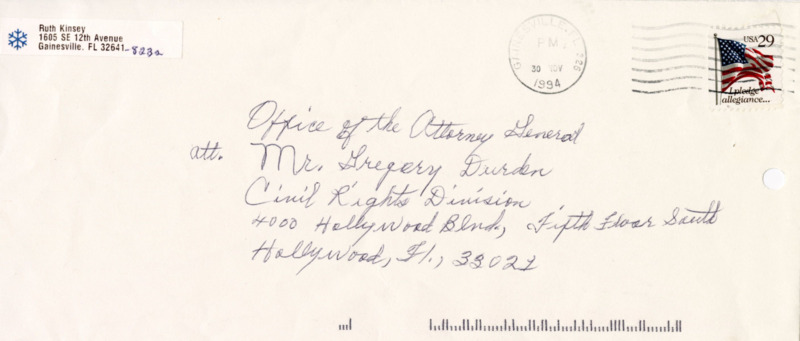 Ruth Kinsey
1605 SE 12th Avenue
Gainesville, FL 32641-8232
GAINESVILLE, FL 326
PM
30 NOV
1994
USA 29
I pledge
allegiance...
Office of the Attorney General
att. Mr. Gregory Durden
Civil Rights Division
4000 Hollywood Blvd., Fifth Floor South
Hollywood, Fl., 33021